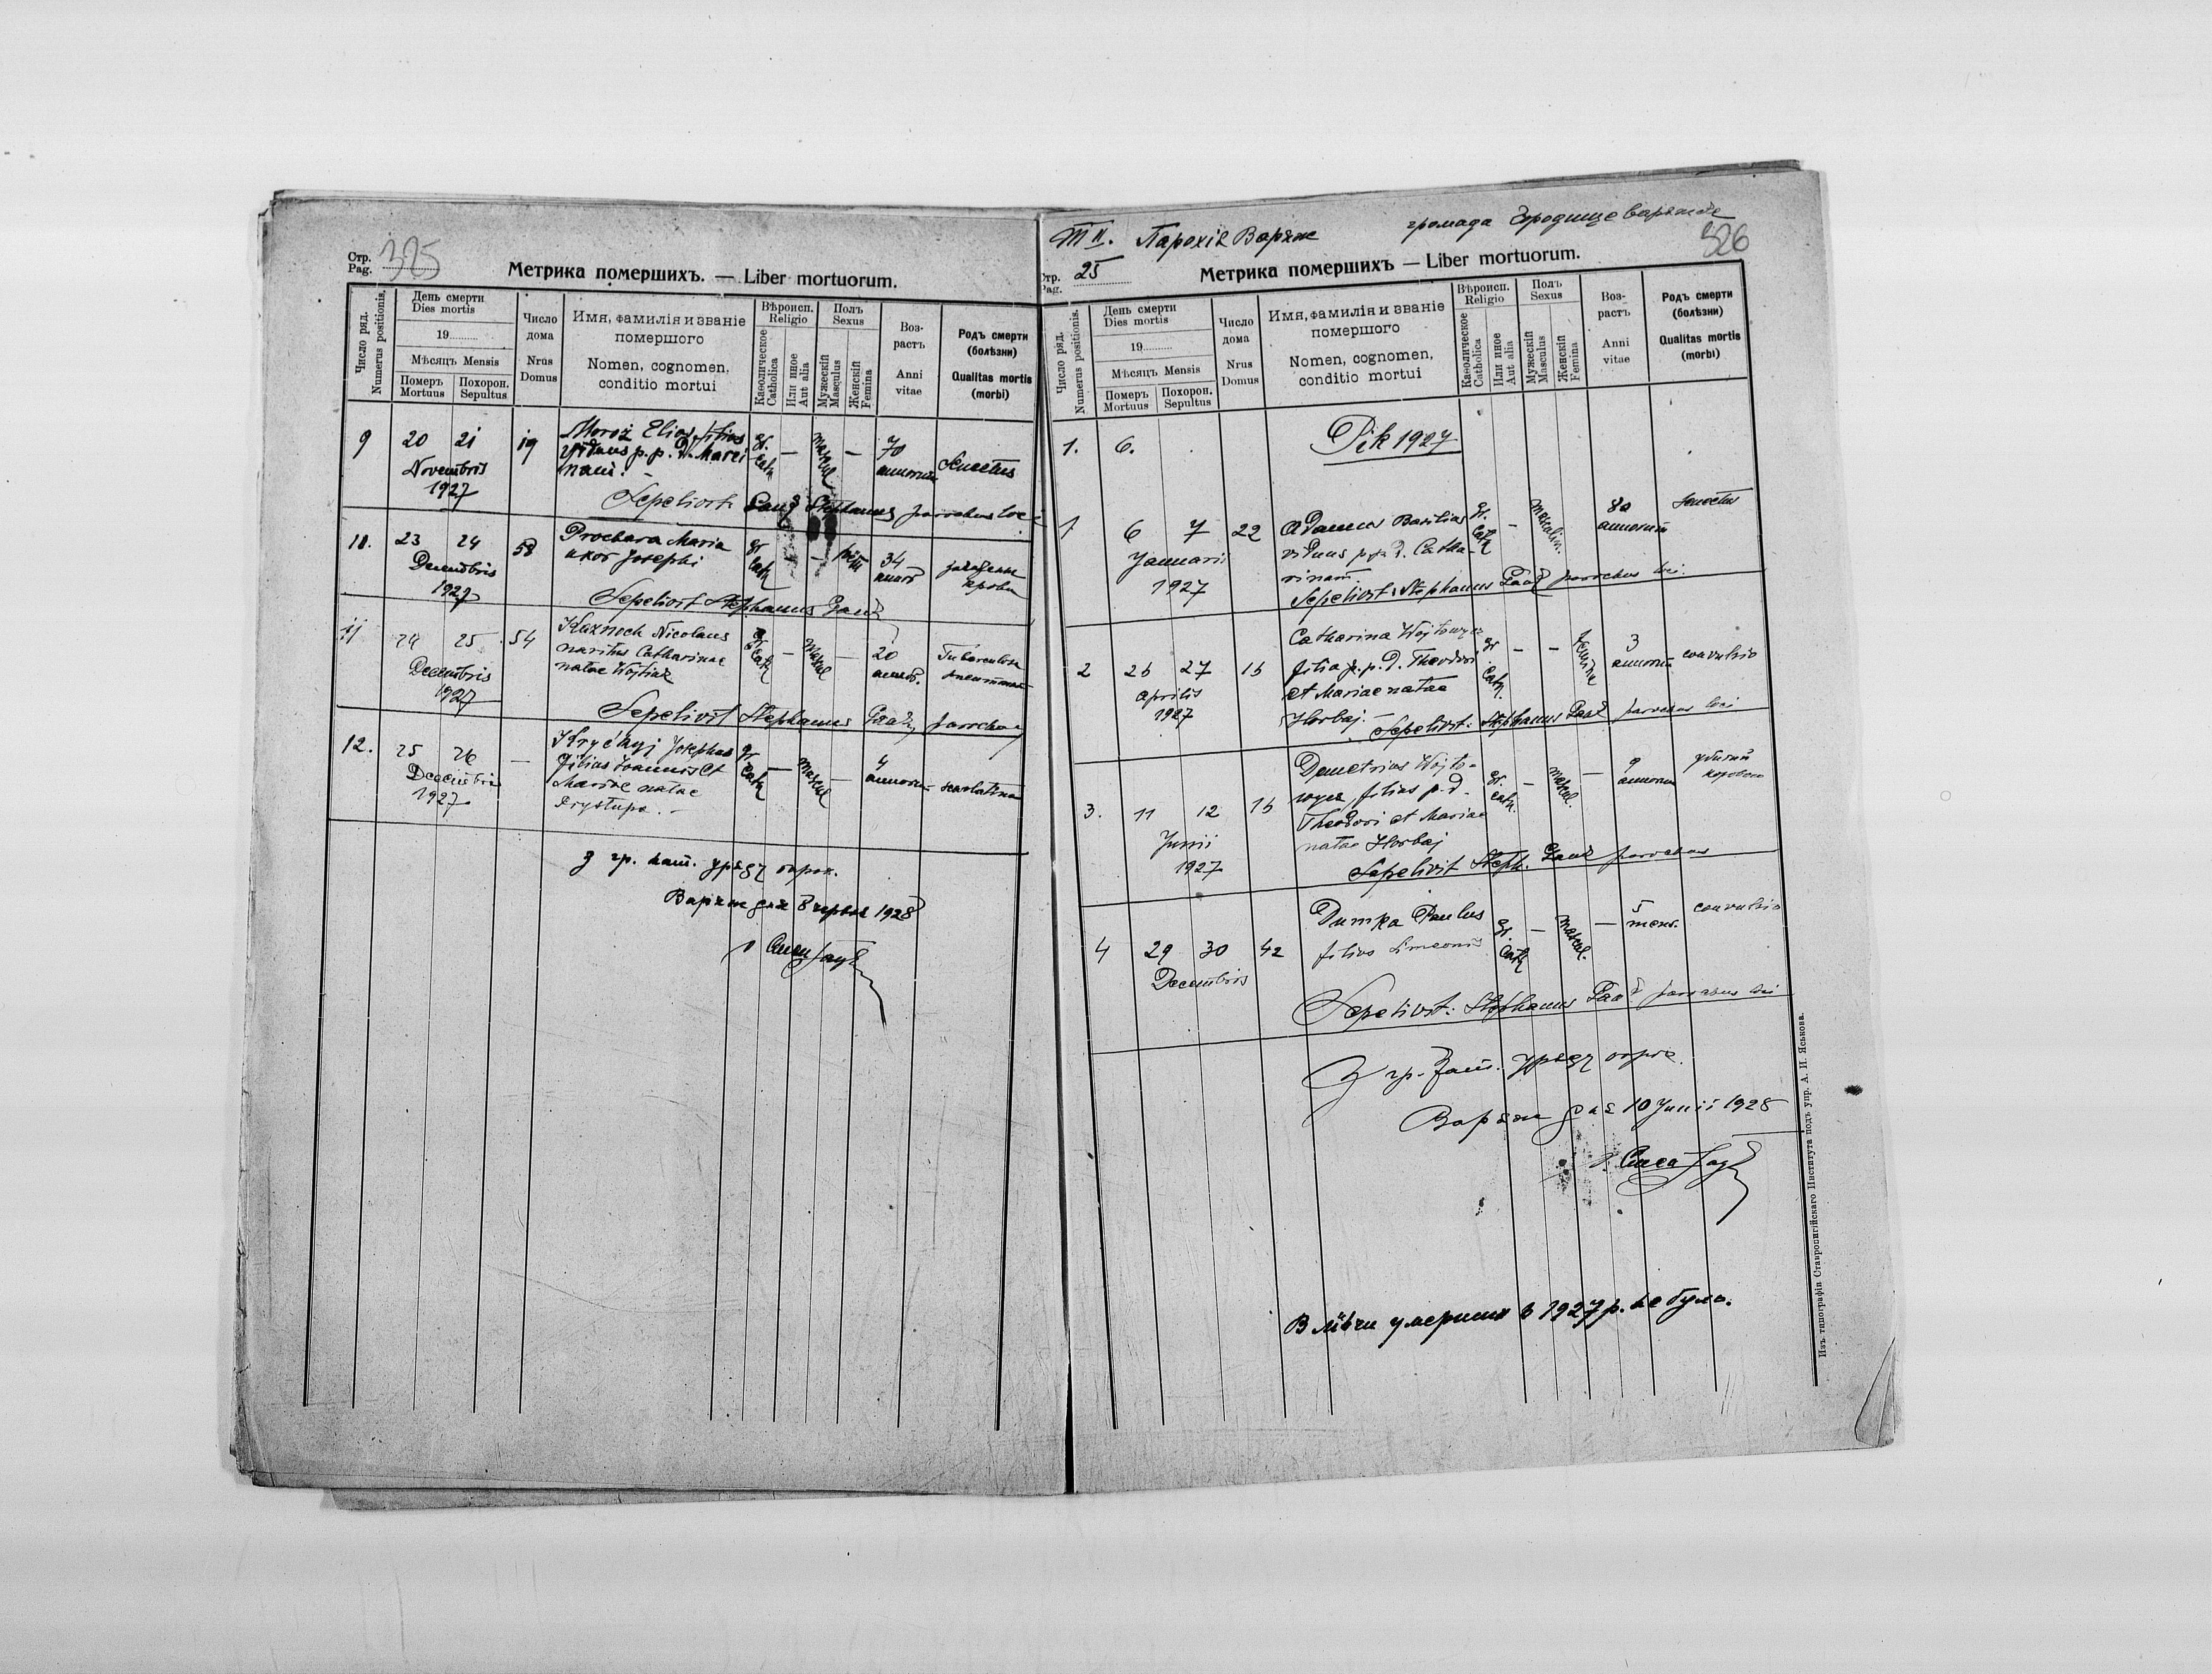 Стр.
Pag. 325
Метрика помершихъ. — Liber mortuorum.
Число ряд.
Numerus positionis.
День смерти
Dies mortis
19
Мѣсяцъ Mensis
Померъ Mortuus
Похорон. Sepultus
Число дома
Nrus Domus
Имя, фамилія и званіе
помершого
Nomen, cognomen,
conditio mortui
Вѣроисп.
Religio
Каѳолическое
Catholica
Или иное
Aut alia
Полъ
Sexus
Мужескій
Masculus
Женскій
Femina
Воз-
растъ
Anni
vitae
Родъ смерти
(болѣзни)
Qualitas mortis
(morbi)
9 20 21 19 Moroz Elias, filius gr. cath — mascul — 70 annorum Senectus
Novembris viduus p. p. d. Marci
1927
Sepelivit Stephanus parochus loci
10. 23 24 58 Prochera Maria gr cath — — fem 34 annor
Decembris uxor Josephi
1927
Sepelivit Stephanus
11 24 25 54 Kaznoch Nicolaus gr cath — mascul — 20 annor. Tuberculosa
Decembris maritus Catharinae
1927 natae Wojtiuk
Sepelivit Stephanus parochus
12. 25 26 — Kryčkyj Josephus gr cath — mascul — 4 annorum scarlatina
Decembris filius Joannis et
1927 Mariae natae
Prystupa. —
З гр. кат. уряду парох.
Варяж дня 8 червня 1928
Т II. Парохія Варяж громада Городище варяжске
326
Стр.
Pag. 25
Метрика помершихъ — Liber mortuorum.
Число ряд.
Numerus positionis.
День смерти
Dies mortis
19
Мѣсяцъ Mensis
Померъ Mortuus
Похорон. Sepultus
Число дома
Nrus Domus
Имя, фамилія и званіе
помершого
Nomen, cognomen,
conditio mortui
Вѣроисп.
Religio
Каѳолическое
Catholica
Или иное
Aut alia
Полъ
Sexus
Мужескій
Masculus
Женскій
Femina
Воз-
растъ
Anni
vitae
Родъ смерти
(болѣзни)
Qualitas mortis
(morbi)
1. 6. Рік 1927
1 6 7 22 Adamus Basilius gr. cath — masculin. 80 annorum senectus
Januarii viduus p. p. d. Catha-
1927 rinam
Sepelivit: Stephanus parochus loci.
2 26 27 16 Catharina Wojtowycz gr. cath. — — femina 3 annorum convulsio
Aprilis filia p. p. d. Theodori
1927 et Mariae natae
Horbaj. — Sepelivit: Stephanus parochus loci
3. 11 12 16 Demetrius Wojto- gr. cath. — mascul. — 9 annorum убитий коровою
Junii wycz, filius p. d.
1927 Theodori et Mariae
natae Horbaj
Sepelivit Steph. parochus
4 29 30 42 Dumka Paulus gr. cath — mascul. — 5 mens. convulsio
Decembris filius Simeonis
Sepelivit: Stephanus parochus loci
З гр. кат. уряду парох.
Варяж дня 10 Junii 1928
В умерших в 1927 р. не було.
Изъ типографіи Ставропигійскаго Института подъ упр. А. И. Яськова.